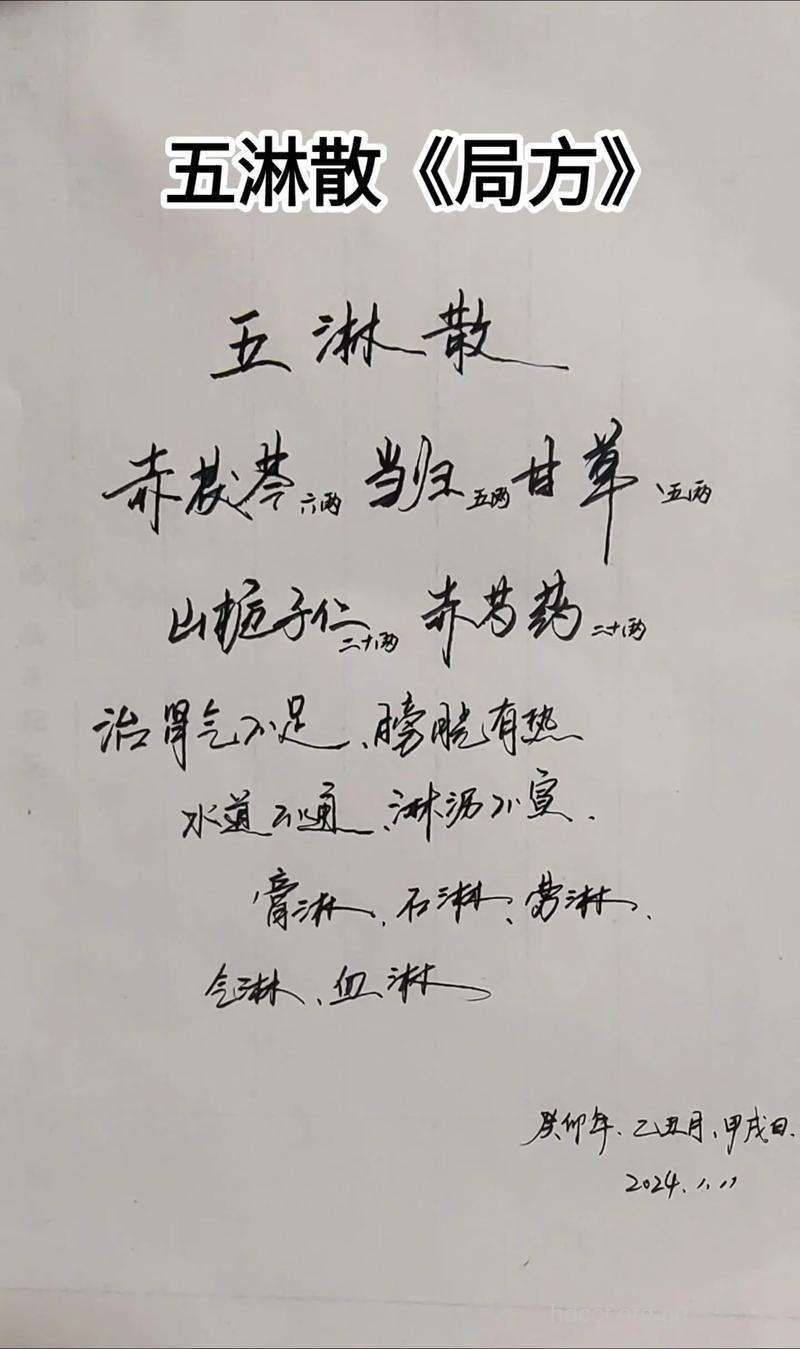 五淋散《局方》
五淋散
赤茯苓六两 当归五两 甘草、五两
山栀子仁二十两 赤芍药二十两
治肾气不足、膀胱有热
水道不通、淋沥不宣.
膏淋、石淋、劳淋.
气淋、血淋
癸卯年、乙丑月、甲戌日.
2024.1.11